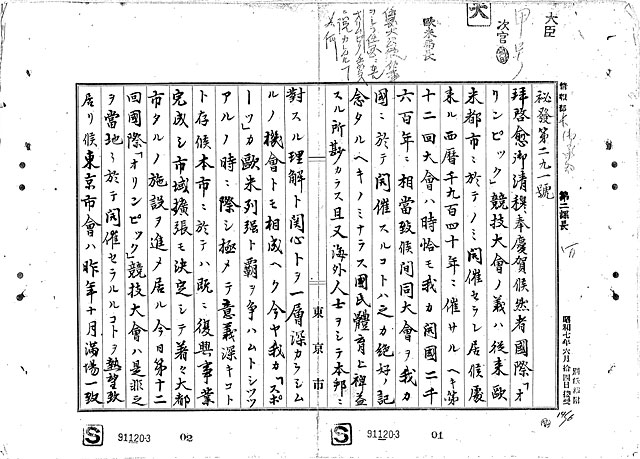 大臣
次官
歐米局長
情報部
第二課長
昭和七年六月拾四日接受
別紙添附
秘發第二九一號
拜啓愈御清穆奉慶賀候然者國際「オ
リンピック」競技大會ノ義ハ從來歐
米都市ニ於テノミ開催セラレ居候處
來ル西暦千九百四十年ニ催サルヘキ第
十二回大會ハ時恰モ我カ開國二千
六百年ニ相當致候間同大會ヲ我カ
國ニ於テ開催スルコトハ之カ絶好ノ記
念タルヘキノミナラス國民體育上裨益
スル所尠カラス且又海外人士ヲシテ本邦ニ
東京市
對スル理解ト関心トヲ一層深カラシム
ルノ機會トモ相成ヘク今ヤ我カ「スポ
ーツ」カ歐米列强ト覇ヲ争ハムトシツツ
アルノ時ニ際シ極メテ意義深キコト
ト存候本市ニ於テハ既ニ復興事業
完成シ市域擴張モ決定シテ着々大都
市タルノ施設ヲ進メ居ル今日第十二
回國際「オリンピック」競技大會ハ是非之
ヲ當地ニ於テ開催セラルルコトヲ熱望致
居リ候東京市會ハ昨年十月滿場一致
S 91120-3 02
S 91120-3 01